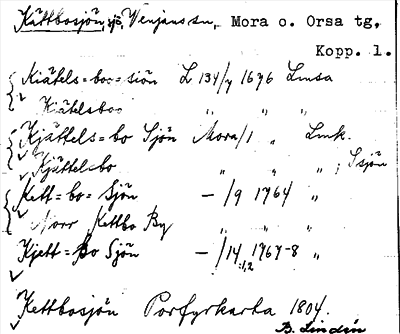 Kättbosjön, sjö, Venjans sn, Mora o. Orsa tg,
Kopp. l.
Kiätels=boo=siön L 134/4 1676 Lmsa
Kiätelsboo " " "
Kjättels=bo Sjön Mora/1 " Lmk.
Kjättelsbo " " " i Sjön
Kett=bo=Sjön —/9 1764 "
Norr Kettbo By " " "
Kjett=Bo Sjön —/14:1,2 1767-8 "
Kettbosjön Porfyrkarta 1804.
B. Lindén